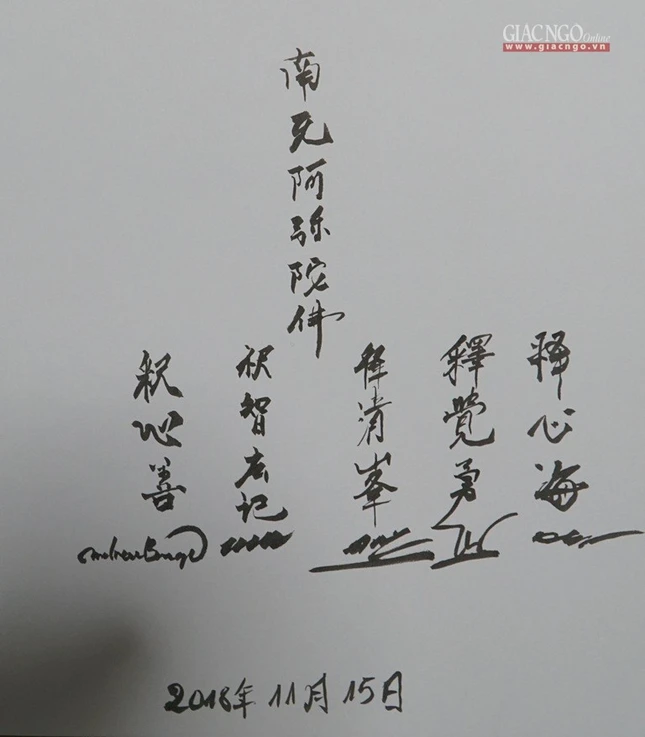 GIÁC NGỘ Online
www.giacngo.vn
南无阿弥陀佛
释心海
釋覺勇
释清峯
释智宏记
釈心善
2018年11月15日